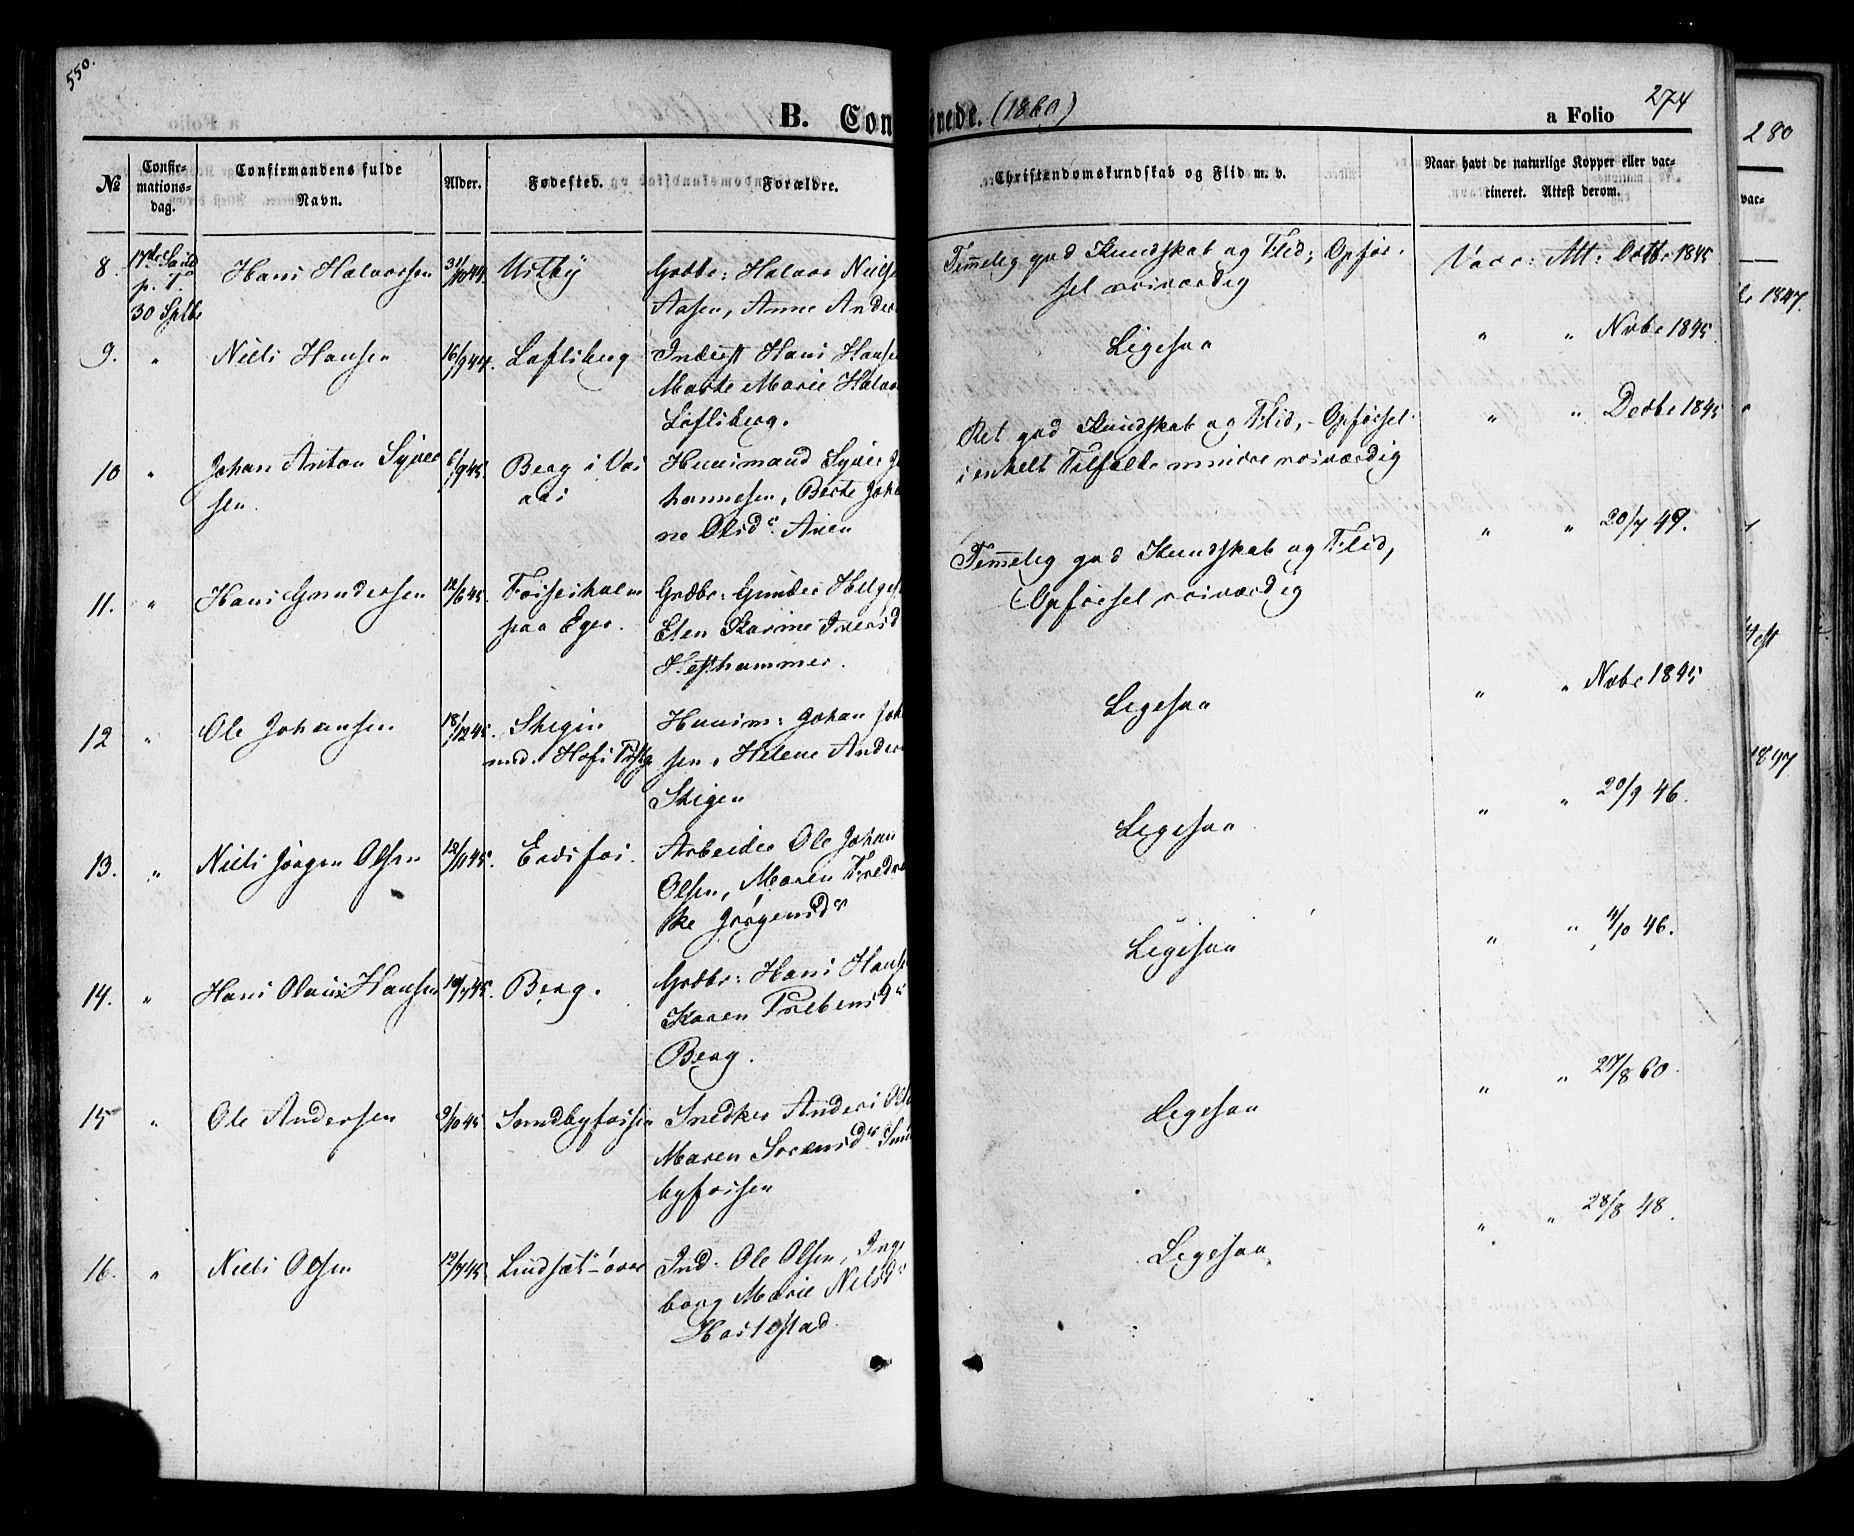 550.
B. Con
irede. (1860)
a Folio 274
280
№
Confir-
mations-
dag.
Confirmandens fulde
Navn.
Alder.
Fødested.
Forældre.
Christendomskundskab og Flid m. v.
Naar havt de naturlige Kopper eller vac-
cineret. Attest derom.
vac-
8. 17de Sønd
p. T.
30 Sptbr
Hans Halvorsen 31/10 44 Ustby Grdbr: Halvor Niels
Aasen, Anne Anders
Temmelig god Kundskab og Flid; Opfør-
sel roisværdig
Vacc: Att: Octbr 1845
1847.
9. " Niels Hansen 16/9 44. Loftsberg Inderst Hans Hanse
Marte Marie Halvor
Loftsberg.
Ligesaa " " Nvbr 1845
10 " Johan Anton Syver
sen. 6/9 45. Berg i Vas
aas Huusmand Syver Jo
hannesen, Berte Joha
ne Olsdr Aaen
Ret god Kundskab og Flid, - Opførsel
i enkelt Tilfælde mindre roisværdig
" " Decbr 1845
11. " Hans Gundersen 12/6 45. Fosseholm
paa Eger. Grdbr: Gunder Helges
Elen Karine Iversd
Hesthammer.
Temmelig god Kundskab og Flid,
Opførsel roisværdig
" " 20/7 49.
12 " Ole Johansen 18/12 45. Skigen
Huusm: Johan Joh
sen, Helene Anders
Skigen
Ligesaa " " Nvbr 1845
1847
13. " Niels Jørgen Olsen 12/11 45. Eidsfos. Arbeider Ole Johan
Olsen, Maren Fredri
ke Jørgensdr
Ligesaa " " 20/9 46.
14. " Hans Olaus Hansen 45. Berg. Grdbr: Hans Hanse
Karen Prebensdr
Berg.
Ligesaa " " 4/10 46.
15 " Ole Andersen 9/10 45 Sundbyfossen Snedker Anders Olse
Maren Sørensdr
byfossen
Ligesaa " " 27/8 60.
16. " Niels Olsen 12/9 45. Lindsæt-øvre Ind. Ole Olsen, Inge
borg Marie Nilsdr
Haslestad
Ligesaa. " " 28/8 48.